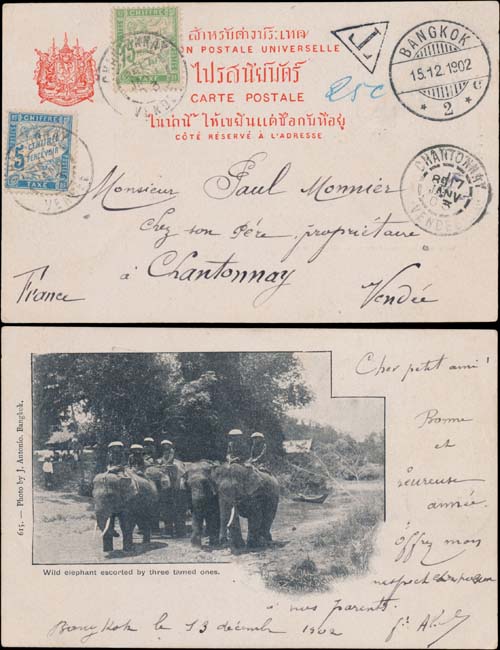 สำหรับต่างประเทศ
ON POSTALE UNIVERSELLE
ไปรสนียบัตร์
CARTE POSTALE
CÔTÉ RÉSERVÉ A L'ADRESSE
CHIFFRE
15
TAXE
CHIFFRE
5
CENTIMES
A PERCEVOIR
TAXE
T
25c
BANGKOK
15.12.1902
2
CHANTONNAY
JANV
VENDÉE
CHANTONNAY
VENDÉE
Monsieur Paul Monnier
chez son Père, propriétaire
à Chantonnay
France
Vendée
615. — Photo by J. Antonio. Bangkok.
Wild elephant escorted by three tamed ones.
Cher petit ami!
Bonne
et
heureuse
année.
Offrez mon
respect
à vos parents.
Bangkok le 13 décembre 1902